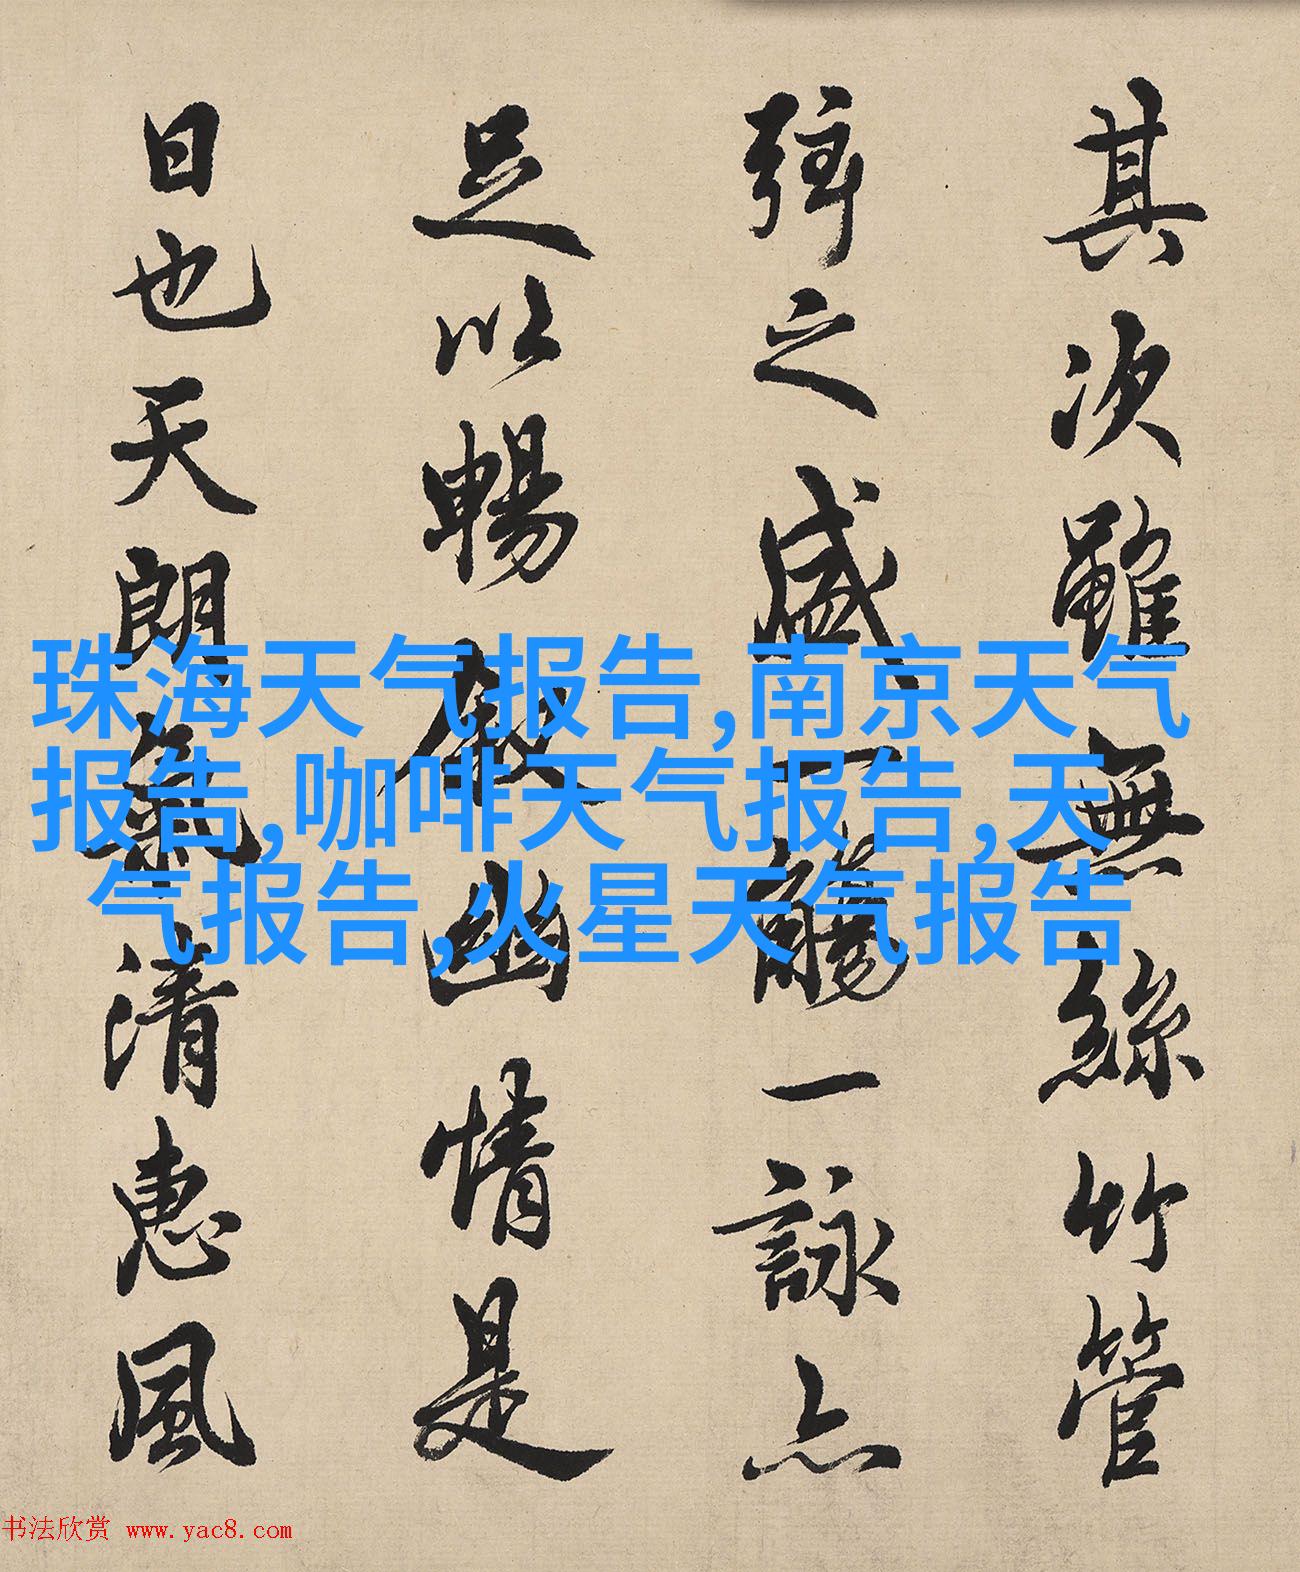 其次雖無絲竹管
弦之盛一觴一詠亦
足以暢叙幽情是
日也天朗氣清惠風
珠海天气报告,南京天气
报告,咖啡天气报告,天
气报告,火星天气报告
书法欣赏 www.yac8.com